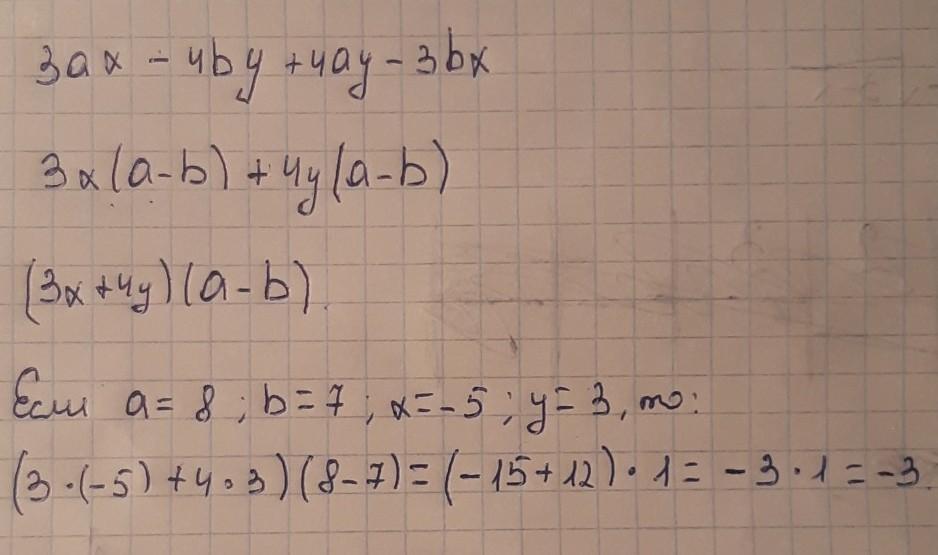 3ax - 4by + 4ay - 3bx
3x(a-b) + 4y(a-b)
(3x+4y)(a-b).
Если a= 8 ; b=7 ; x=-5 ; y=3, то:
(3·(-5)+4·3)(8-7)=(-15+12)·1= -3·1=-3.